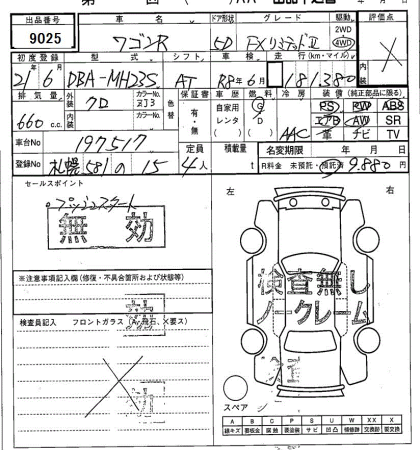 出品番号 車名 ドア形状 グレード 駆動 評価点
9025 ワゴンR 5D FXリミテッドⅡ 2WD 4WD
初度登録 型式 シフト 車検 走行(km・マイル) 内装
21年6月 DBA-MH23S AT R8年6月 181,380
排気量 外装 クロ カラーNo. ZJ3 色替 保証書 車歴 燃料 冷房 装備(純正部品に限る)
660 c.c. 内装 カラーNo. 有・無 自家用 レンタ G D AAC PS PW ABS
エアB AW SR
革 ナビ TV
車台No 197517 定員 積載量 名変期限 年 月 日
登録No 札幌581の15 4人 t R料金 未預託・預託済 9,880円
セールスポイント
プッシュスタート
無効
左 右
検査無し
ノークレーム
※注意事項記入欄(修復・不具合箇所および状態等)
検査員記入 フロントガラス(A,飛石,X要ス)
スペア
A B C P S U W XX X
線キズ 腐蝕 要塗装 サビ 凹凸 補修跡 交換済 要交換